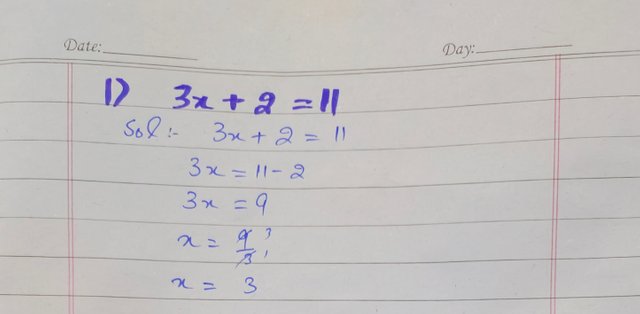 Date: Day:
1) 3x + 2 = 11
Sol :- 3x + 2 = 11
3x = 11 - 2
3x = 9
x = 9/3 3 1
x = 3